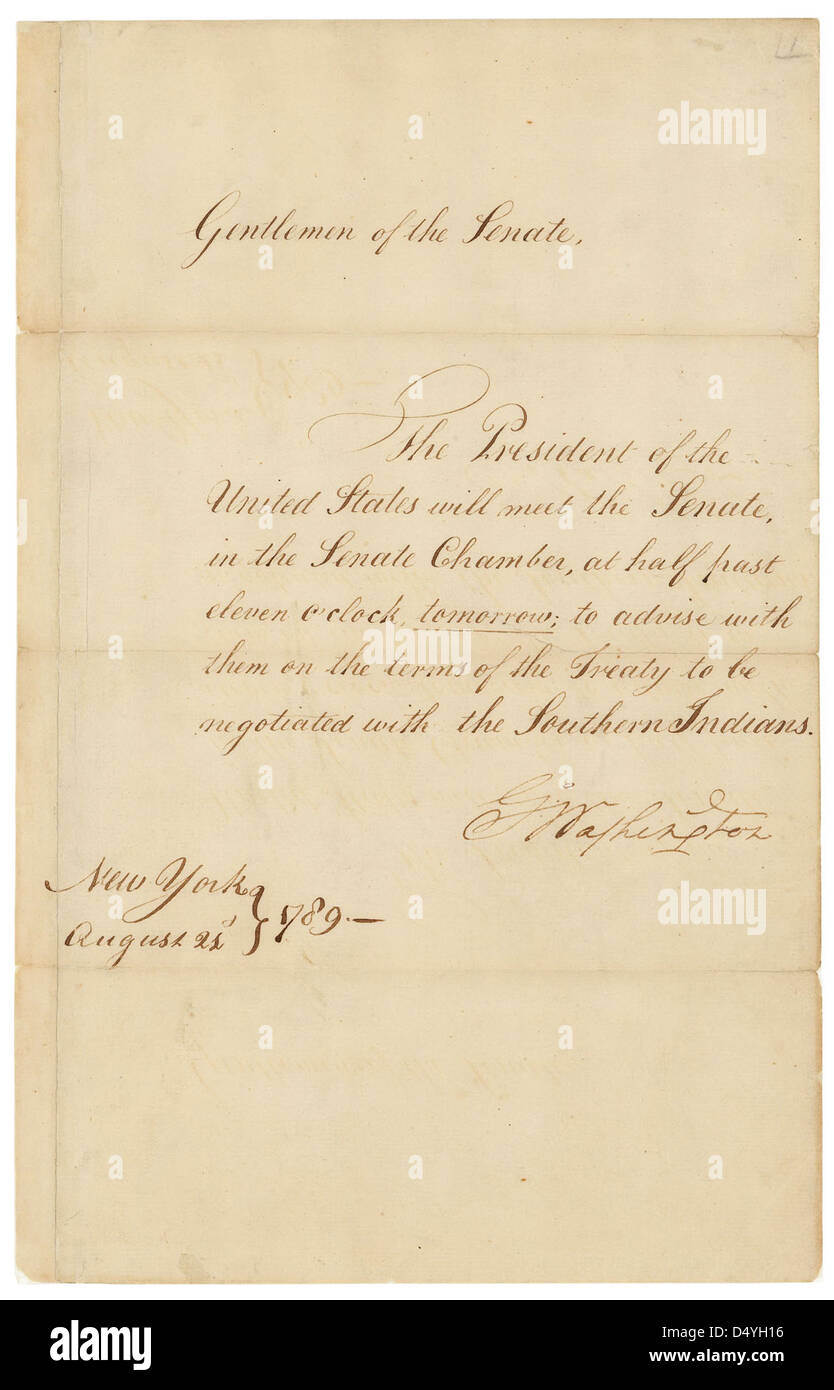 Gentlemen of the Senate,
The President of the
United States will meet the Senate,
in the Senate Chamber, at half past
eleven o'clock, tomorrow; to advise with
them on the terms of the Treaty to be
negotiated with the Southern Indians.
G. Washington
New York
August 21st } 1789.—
alamy
Image ID: D4YH16
www.alamy.com